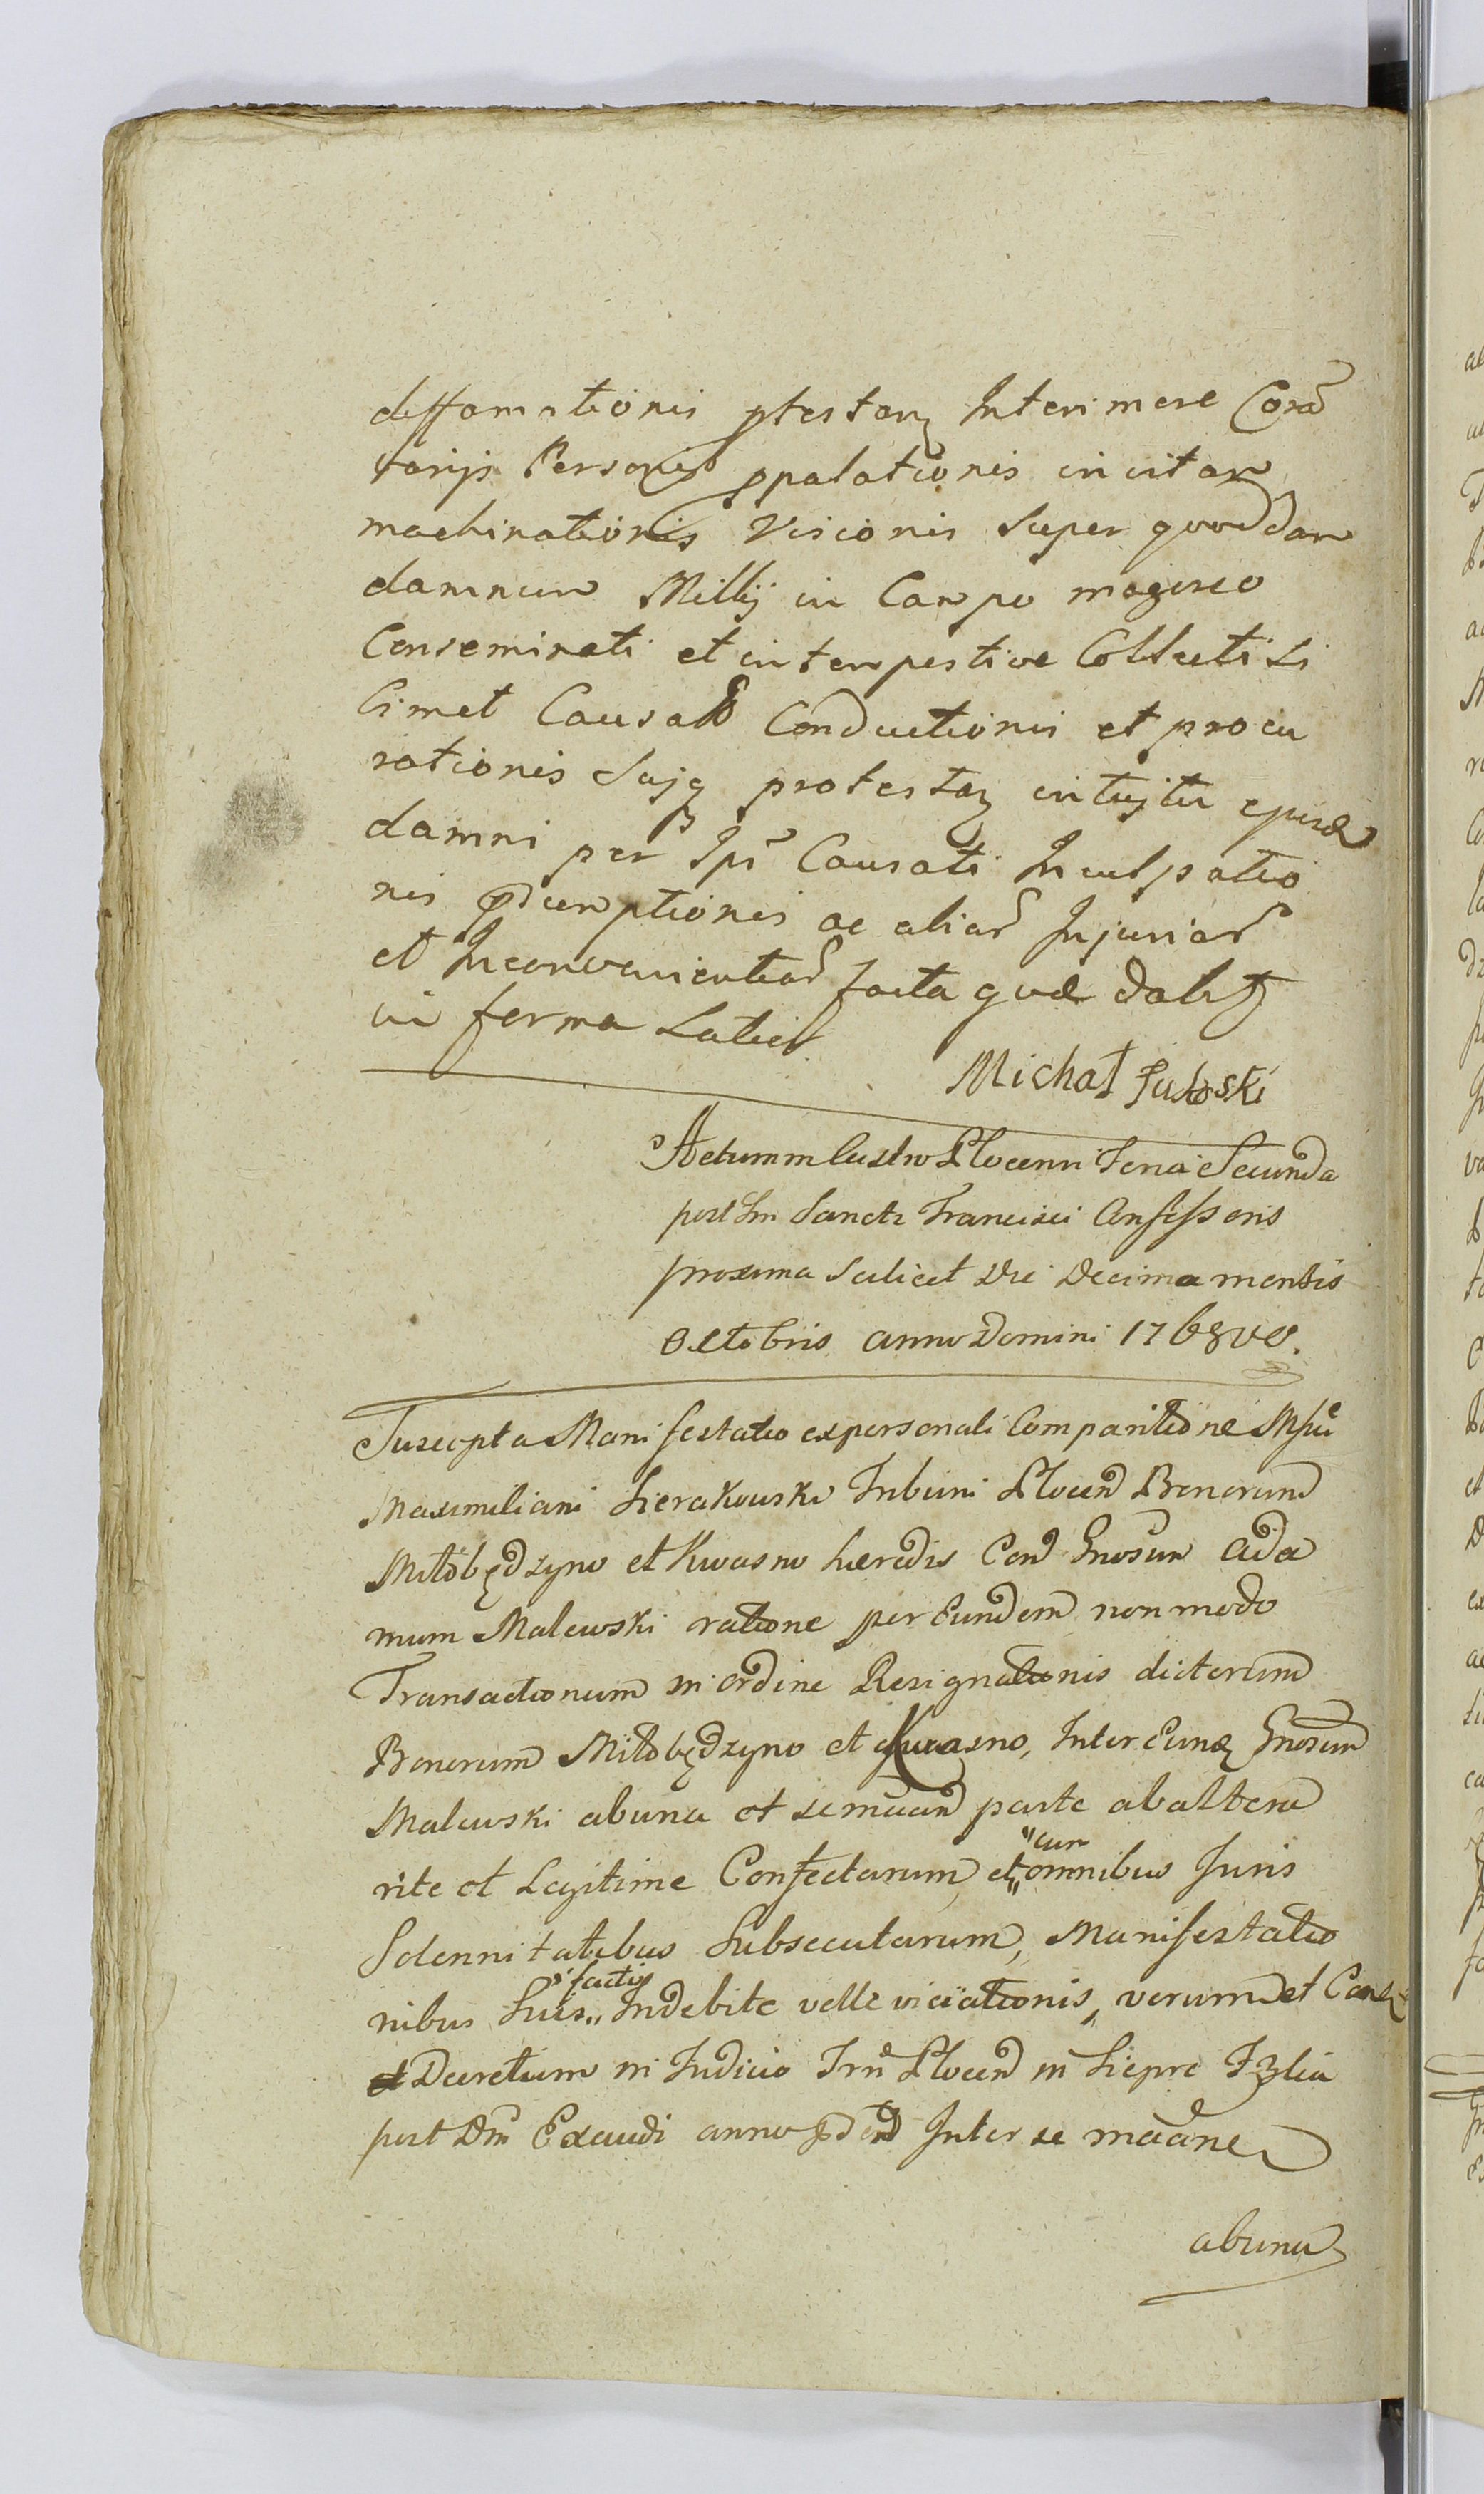 deffamationis ptestanz Interimere Cora
varijs Personis ppalationis invitan
machinationis Visionis super quoddam
damnum Millij in Campo magireo
Conseminati et intempestive Collecti Li
Cimet Causato Conductionis et procu
rationis Sujq protestanz intujtu ejusd
damni per Ips Causati Inculpatio
nis ac aliar Injuriar
et Inconvenientiar facta quæ dabit
in forma Latiori
Michał
Actum in Castro Plocensi Feria Secunda
post Fm Sancti Francisci Confessoris
proxima Scilicet Die Decima mensis
Octobris anno Domini 1768vo.
Suscepta Manifestatio ex personali Comparitione Msci
Maximiliani Sierakowski Tribuni Plocen Bonorum
Miłobędzyno et Kwasno hæredis Con Gnosum Ada
mum Malewski ratione per Eundem non modo
Transactionum in ordine Resignationis dictorum
Bonorum Miłobędzyno et Kwasno, Inter Eund Gnosum
Malewski ab una et semean parte ab altera
rite et Legitime Confectarum, et "cum omnibus Juris
Solennitatibus Subsecutarum, Manifestatio
nibus Suis "factis Indebite velle viciationis, verum et Cont
Decretum in Judicio Trri Plocen in Sieprc Fzlia
post Dm Exaudi anno Inter se meane
ab una